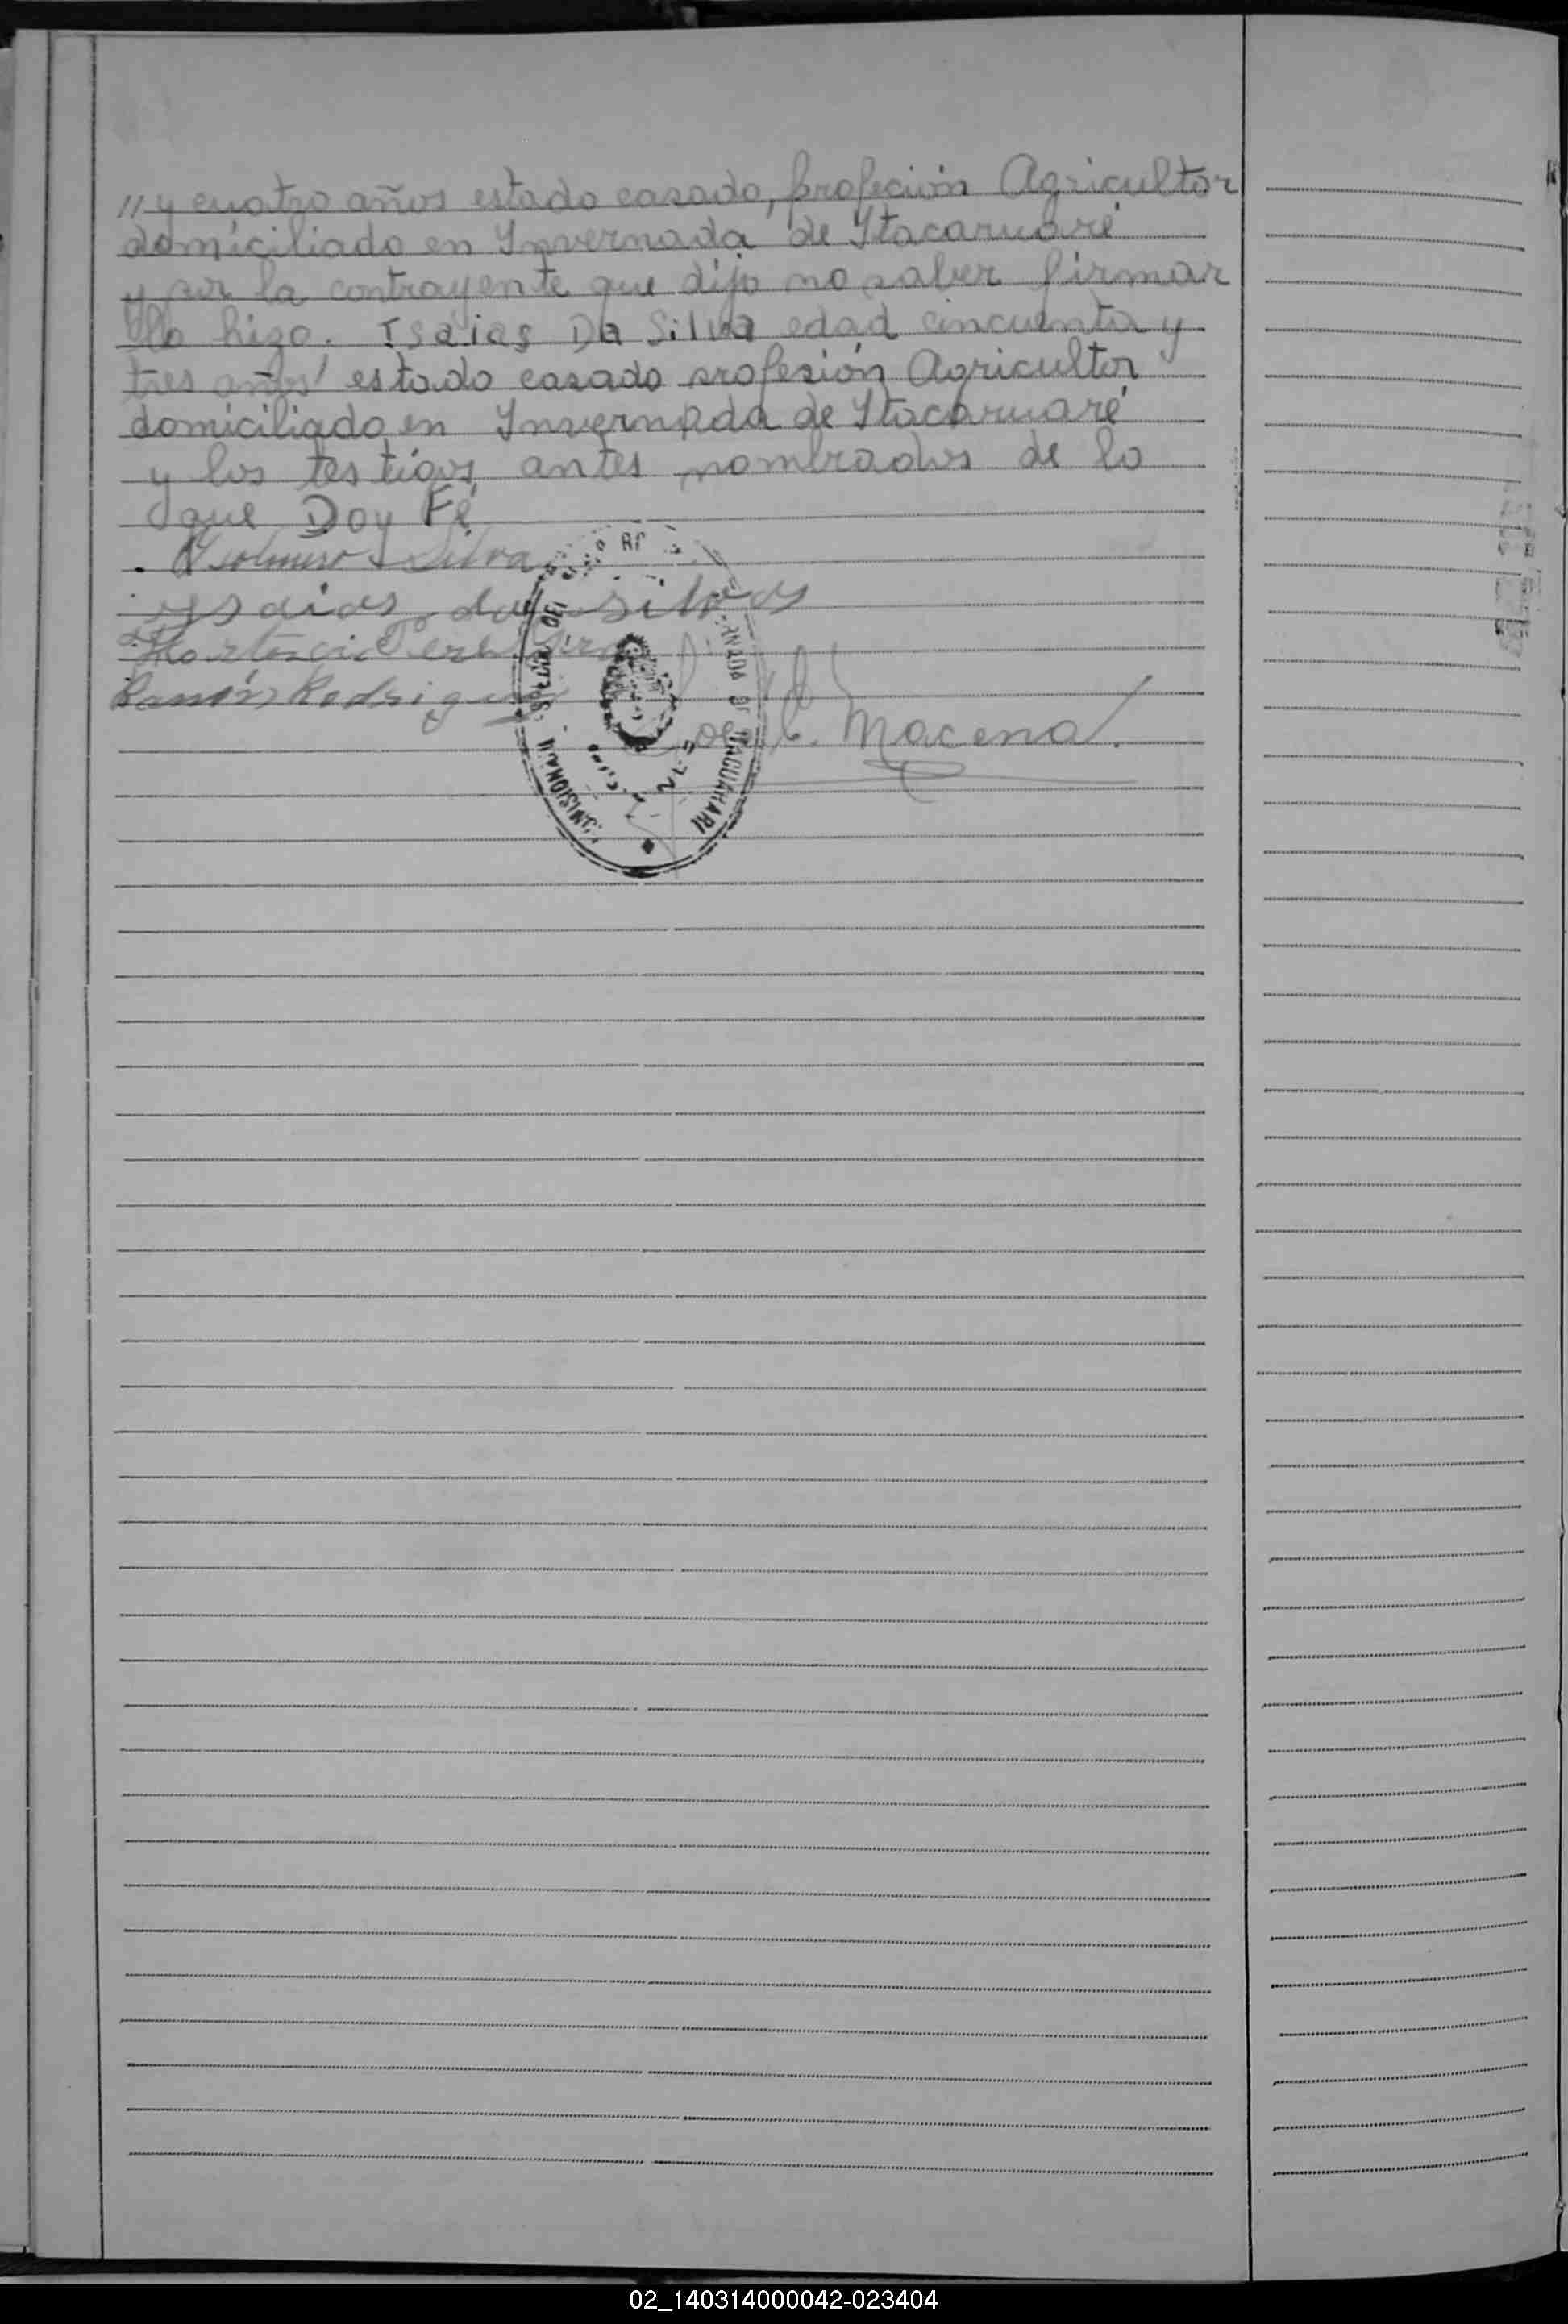 // y cuatro años estado casado, profeción Agricultor
domiciliado en Ynvernada de Ytacaruaré
y por la contrayente que dijo no saber firmar
lo hizo. Isaias Da Silva edad cincuenta y
tres años estado casado profesión Agricultor
domiciliado en Ynvernada de Ytacaruaré
y los testigos antes nombrados de lo
que Doy Fé
Silva
ysaias da Silva
Ramón Rodrigue
Macena
02_140314000042-023404